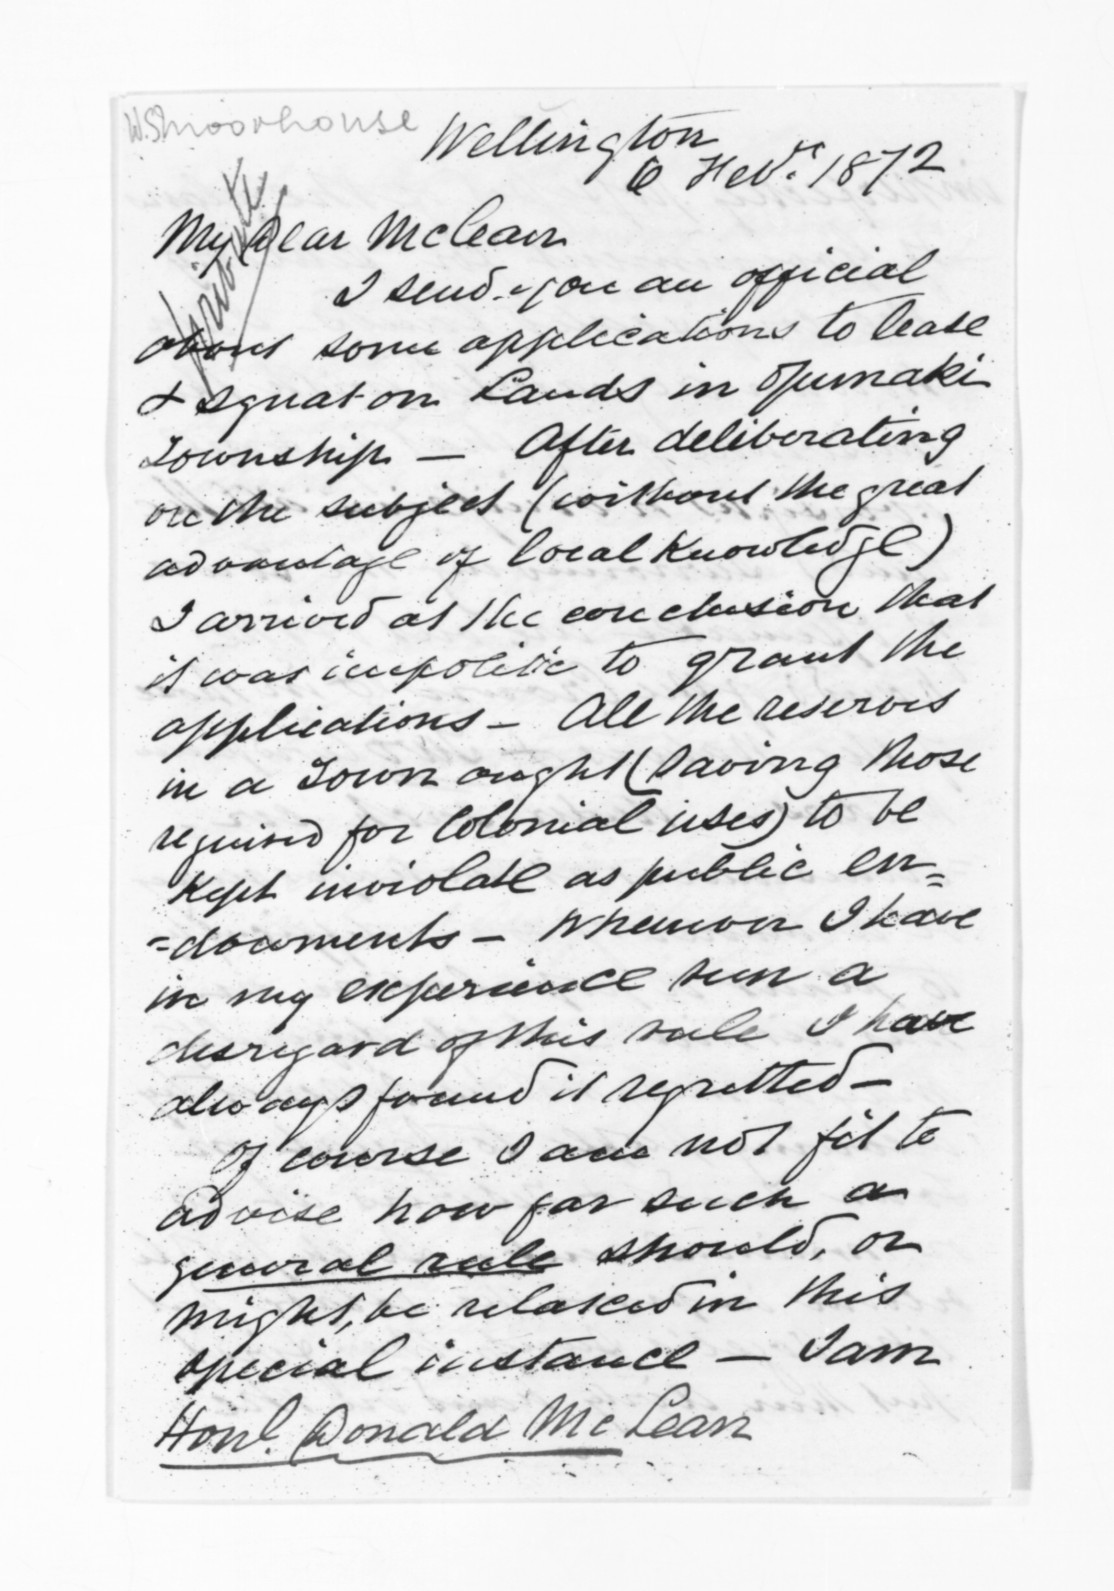 W.S. Moorhouse
Wellington
6 Feby. 1872
Private
My dear McLean
I send you an official
about some applications to lease
& squat on Lands in Opunaki
Township — After deliberating
on the subject (without the great
advantage of local Knowledge)
I arrived at the conclusion that
it was impolitic to grant the
applications — All the reserves
in a Town ought (saving those
required for Colonial uses) to be
Kept inviolate as public en=
=dowments — Whenever I have
in my experience seen a
disregard of this rule I have
always found it regretted —
Of course I am not fit to
advise how far such a
general rule should, or
might, be relaxed in this
special instance — I am
Honl. Donald McLean